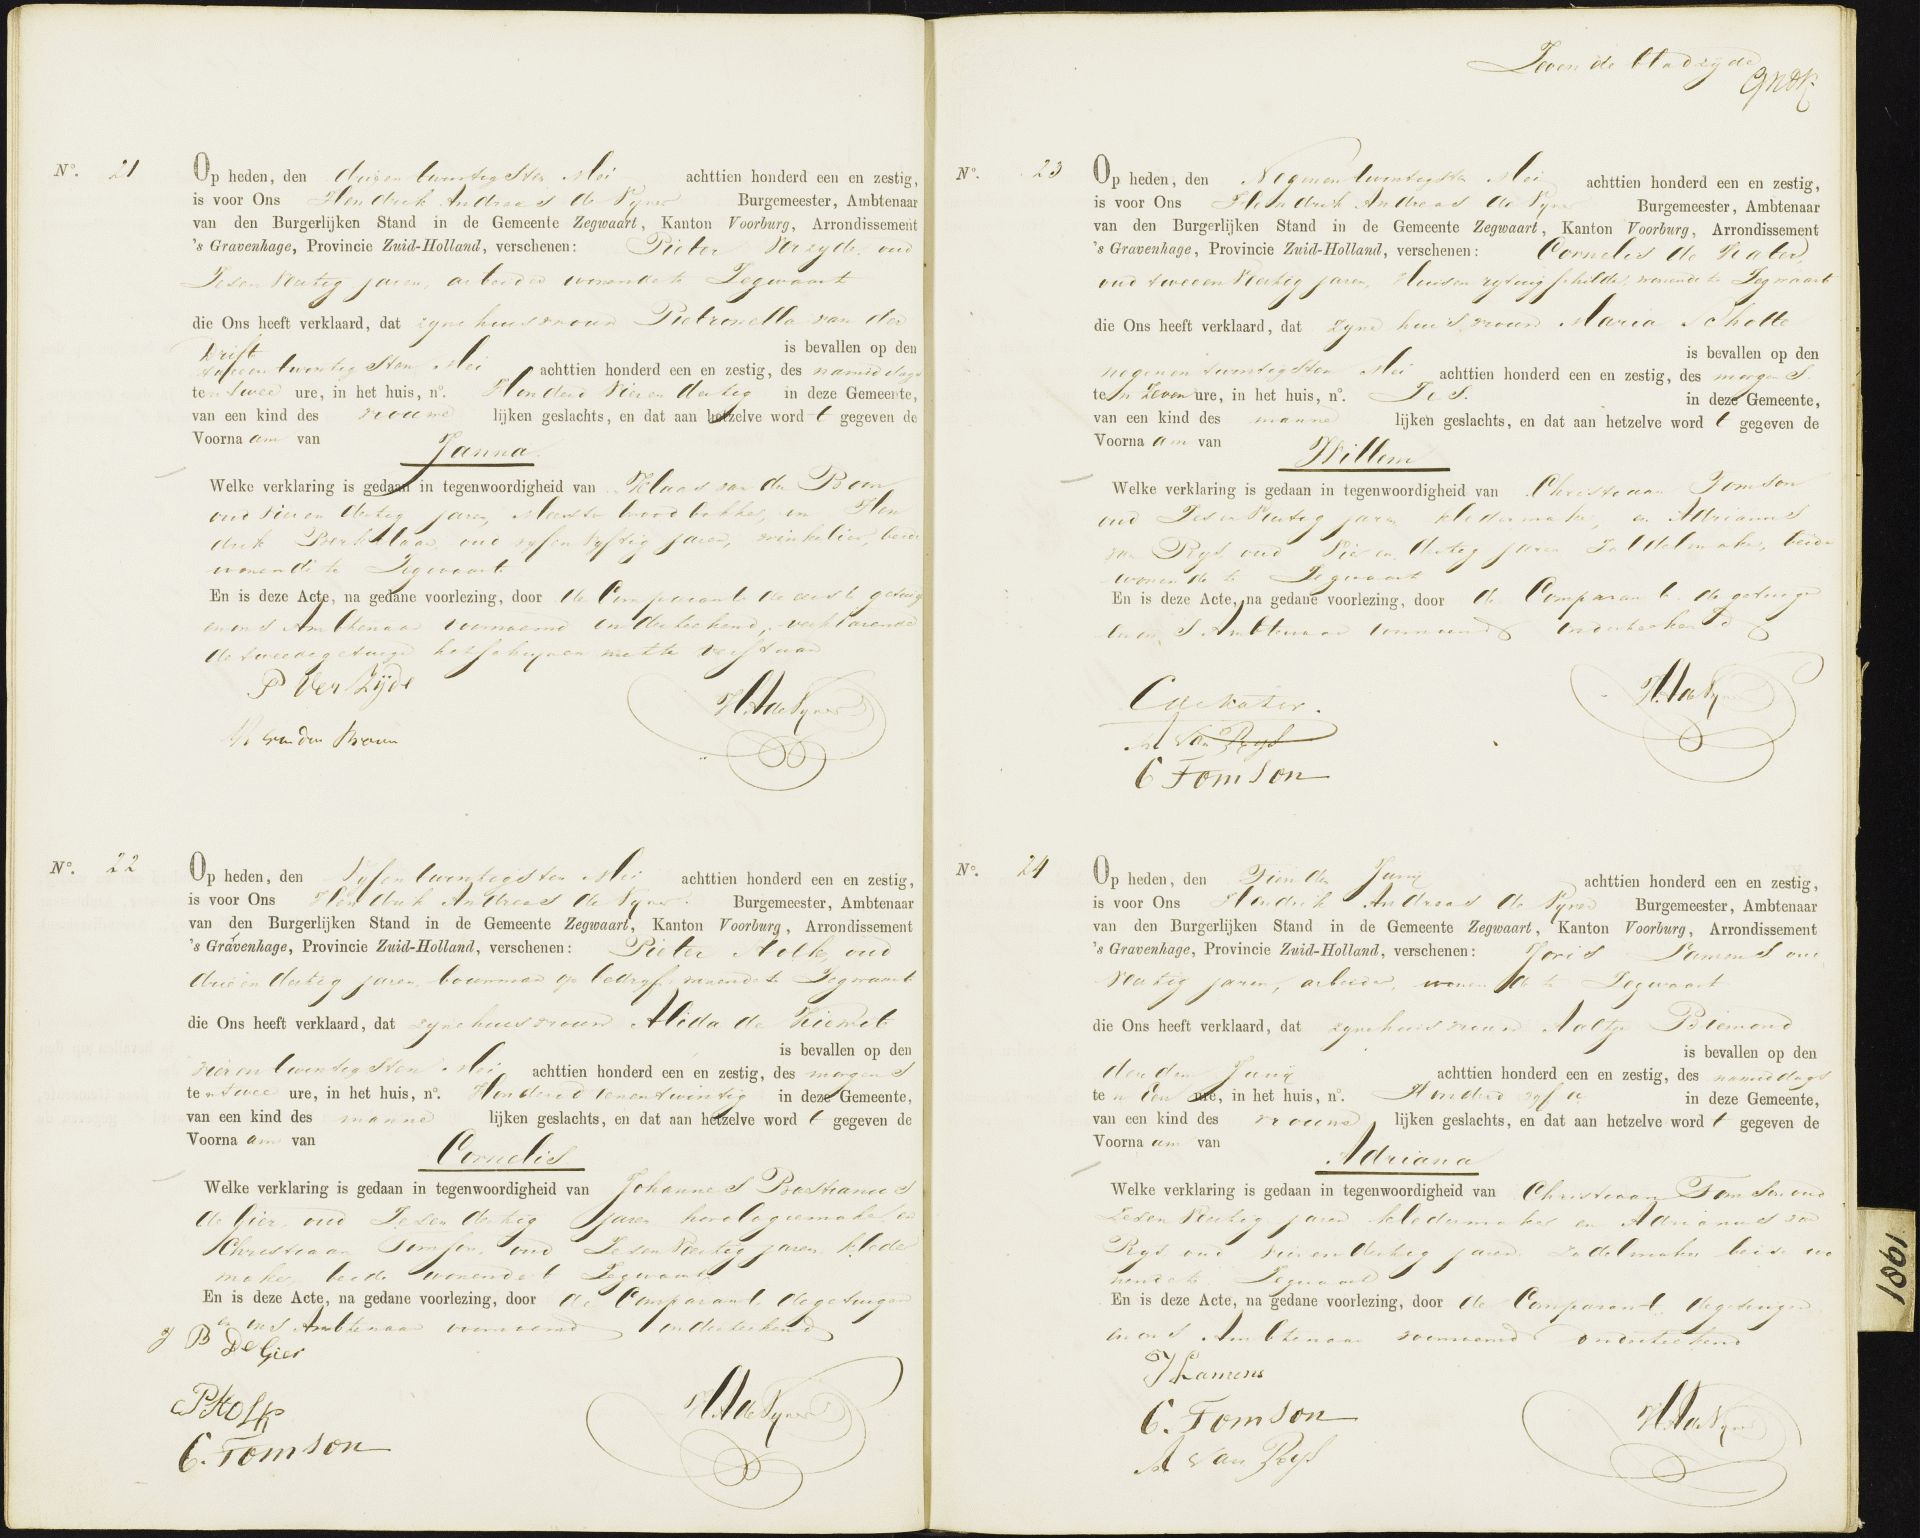 N°. 21
Op heden, den drieen twintigsten Mei achttien honderd een en zestig,
is voor Ons Hendrik Andreas de Vyver Burgemeester, Ambtenaar
van den Burgerlijken Stand in de Gemeente Zegwaart, Kanton Voorburg, Arrondissement
's Gravenhage, Provincie Zuid-Holland, verschenen: Pieter Verzyde, oud
Zesen Veertig jaren, arbeider wonende te Zegwaart
die Ons heeft verklaard, dat zyne huisvrouw Pietronella van der
Drift is bevallen op den
tweeentwintigsten Mei achttien honderd een en zestig, des namiddags
ten twee ure, in het huis, n°. Honderd Vier en dertig in deze Gemeente,
van een kind des vrouwe lijken geslachts, en dat aan hetzelve word t gegeven de
Voorna am van
Janna
Welke verklaring is gedaan in tegenwoordigheid van Klaas van der Boon
oud Vier en dertig jaren, Meester broodbakker, en Hen
drik Berkelaar, oud vyfen Vyftig jaren, winkelier, beide
wonende te Zegwaart
En is deze Acte, na gedane voorlezing, door de Comparant de eerste getuige
en ons Ambtenaar voornoemd onderteekend, verklarende
de tweede getuige het schryven niet te verstaan
P Ver Zijde
HAdeVyver
N°. 22
Op heden, den Vyfentwintigsten Mei achttien honderd een en zestig,
is voor Ons Hendrik Andreas de Vyver Burgemeester, Ambtenaar
van den Burgerlijken Stand in de Gemeente Zegwaart, Kanton Voorburg, Arrondissement
's Gravenhage, Provincie Zuid-Holland, verschenen: Pieter Kolk, oud
drieen dertig jaren, bouwman op bedryf, wonende te Zegwaart
die Ons heeft verklaard, dat zyne huisvrouw Alida de
is bevallen op den
vierentwintigsten Mei achttien honderd een en zestig, des morgens
ten twee ure, in het huis, n°. Honderd eenentwintig in deze Gemeente,
van een kind des manne lijken geslachts, en dat aan hetzelve word t gegeven de
Voorna am van
Cornelis
Welke verklaring is gedaan in tegenwoordigheid van Johannes Bastianus
de Gier, oud Zesen dertig jaren horologiemaker en
Christiaan Tomson, oud Zesen Veertig jaren kleder
maker, beide wonende te Zegwaart
En is deze Acte, na gedane voorlezing, door de Comparant, de getuigen
en ons Ambtenaar voornoemd onderteekend
J B De Gier
P Kolk
HAdeVyver
C. Tomson
Zevende bladzyde
N°. 23
Op heden, den Negenentwintigsten Mei achttien honderd een en zestig,
is voor Ons Hendrik Andreas de Vyver Burgemeester, Ambtenaar
van den Burgerlijken Stand in de Gemeente Zegwaart, Kanton Voorburg, Arrondissement
's Gravenhage, Provincie Zuid-Holland, verschenen: Cornelis de Kater,
oud tweeen Veertig jaren, Huis en rytuig schilder, wonende te Zegwaart
die Ons heeft verklaard, dat zyne huisvrouw Maria Scholte
is bevallen op den
negenentwintigsten Mei achttien honderd een en zestig, des morgens
ten Zeven ure, in het huis, n°. Zes in deze Gemeente,
van een kind des manne lijken geslachts, en dat aan hetzelve word t gegeven de
Voorna am van
Willem
Welke verklaring is gedaan in tegenwoordigheid van Christiaan Tomson
oud Zesen Veertig jaren kledermaker, en Adrianus
van Rys, oud Vier en dertig jaren Zadelmaker, beide
wonende te Zegwaart
En is deze Acte, na gedane voorlezing, door de Comparant de getuigen
en ons Ambtenaar voornoemd onderteekend
C de Kater.
HAdeVyver
A van Rijs
C Tomson
N°. 24
Op heden, den Vierden Junij achttien honderd een en zestig,
is voor Ons Hendrik Andreas de Vyver Burgemeester, Ambtenaar
van den Burgerlijken Stand in de Gemeente Zegwaart, Kanton Voorburg, Arrondissement
's Gravenhage, Provincie Zuid-Holland, verschenen: Joris Lamens oud
Veertig jaren, arbeider, wonende te Zegwaart
die Ons heeft verklaard, dat zyne huisvrouw Aaltje Biemond
is bevallen op den
derden Junij achttien honderd een en zestig, des namiddags
te n Een ure, in het huis, n°. Honderd vyf a in deze Gemeente,
van een kind des vrouwe lijken geslachts, en dat aan hetzelve word t gegeven de
Voorna am van
Adriana
Welke verklaring is gedaan in tegenwoordigheid van Christiaan Tomson oud
Zesen Veertig jaren kledermaker en Adrianus van
Rys oud vierendertig jaren zadelmaker beide wo
nende te Zegwaart
En is deze Acte, na gedane voorlezing, door de Comparant, de getuigen
en ons Ambtenaar voornoemd onderteekend
J Lamens
C. Tomson
HAdeVyver
A van Rijs
1861